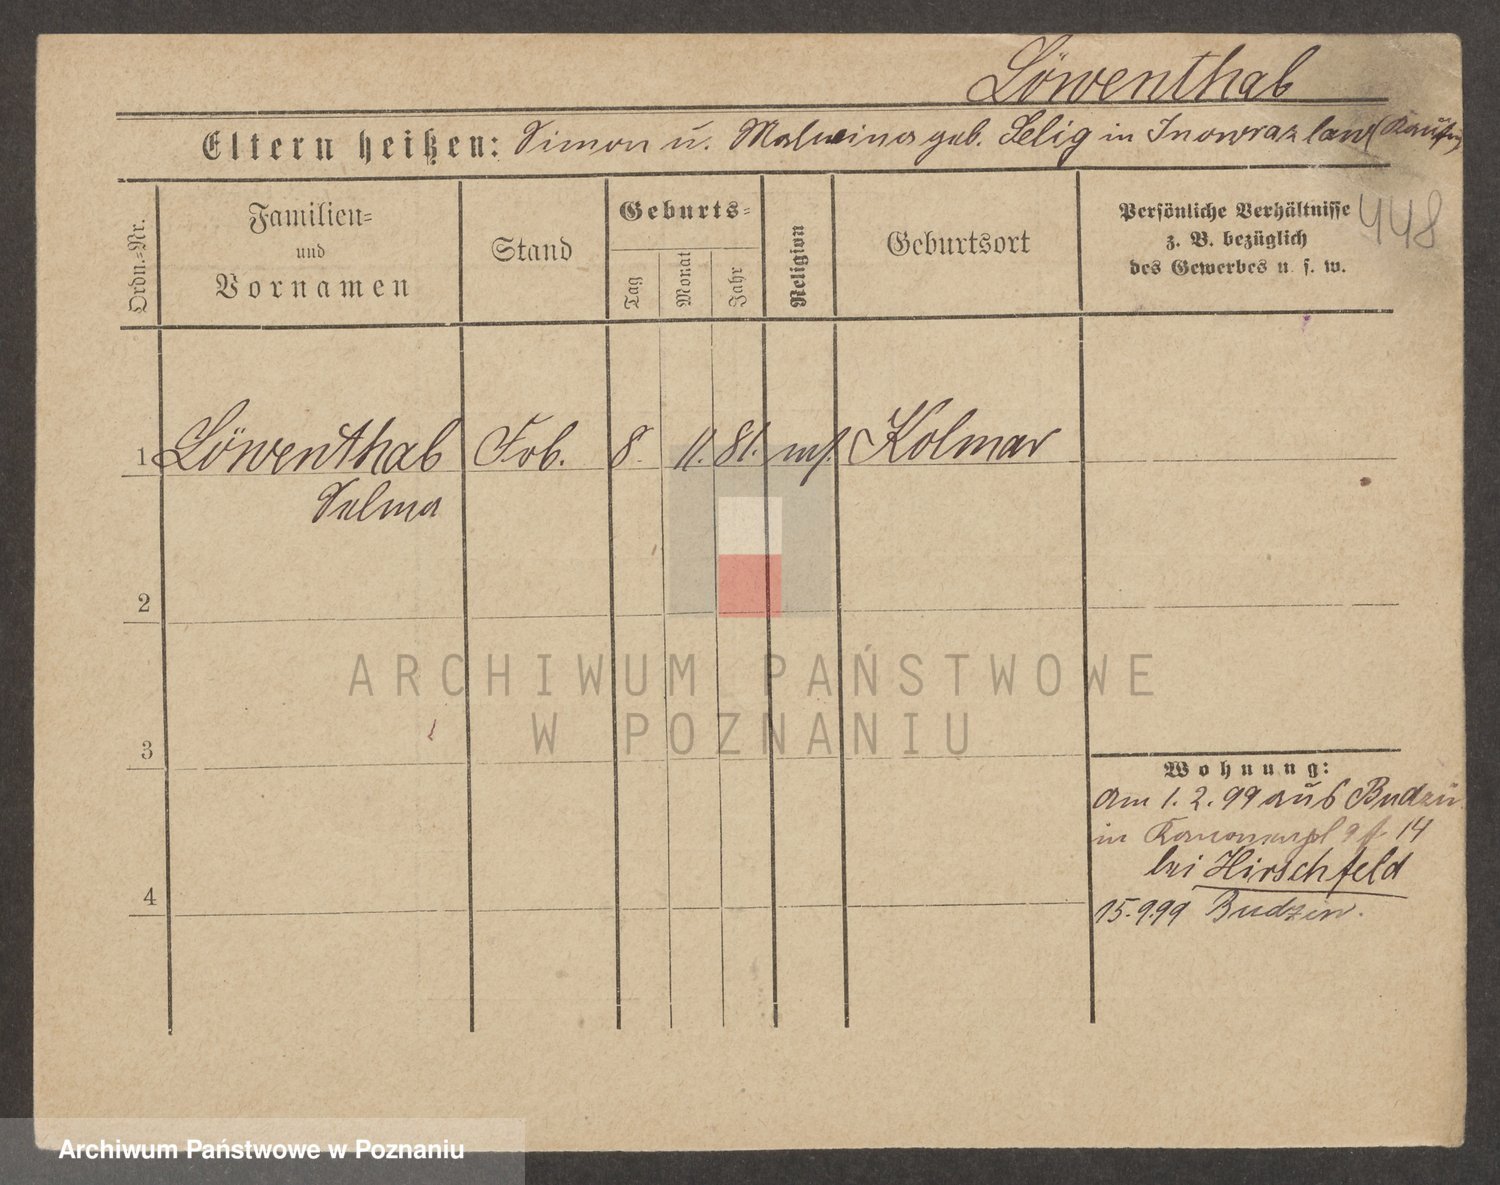 Löwenthal
Eltern heißen: Simon u. Malwina geb. Selig in Inowrazlaw
448
Ordn.-Nr.
Familien-
und
Vornamen
Stand
Geburts-
Tag
Monat
Jahr
Religion
Geburtsort
Persönliche Verhältnisse
z. B. bezüglich
des Gewerbes u. s. w.
1 Löwenthal 8. 11. 81. Kolmar
Selma
2
3
4
ARCHIWUM PAŃSTWOWE
W POZNANIU
Wohnung:
am 1. 2. 99 aus Budzin
in 14
bei Hirschfeld
15.9.99 Budzin.
Archiwum Państwowe w Poznaniu